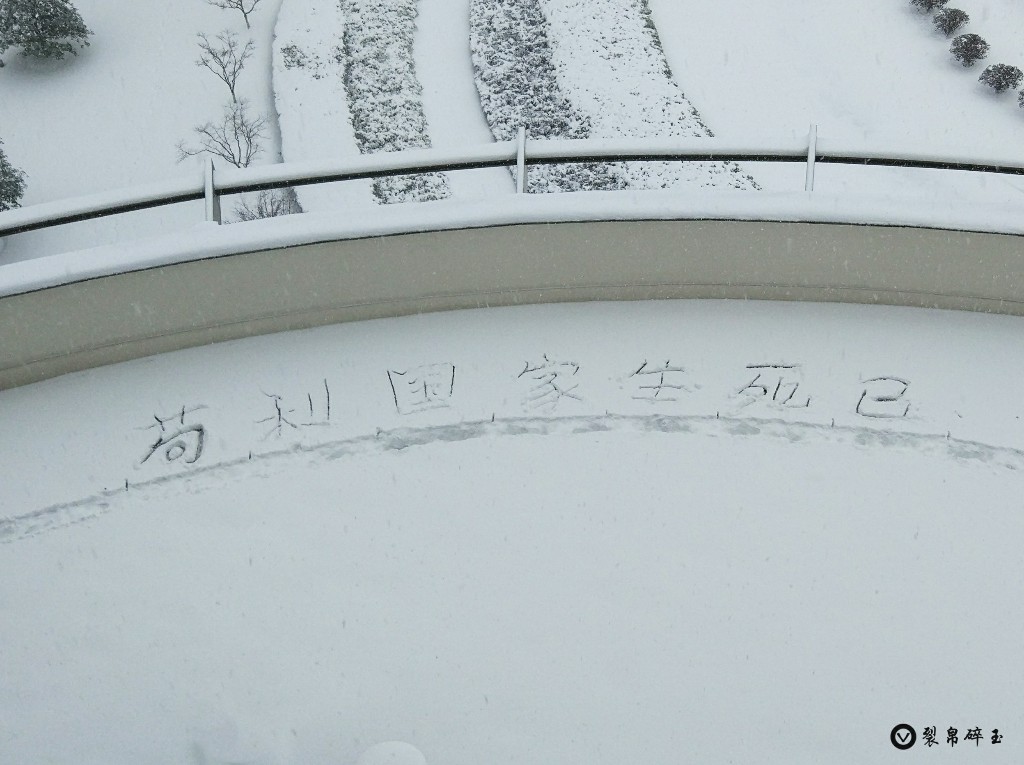 苟利国家生死已
裂帛碎玉